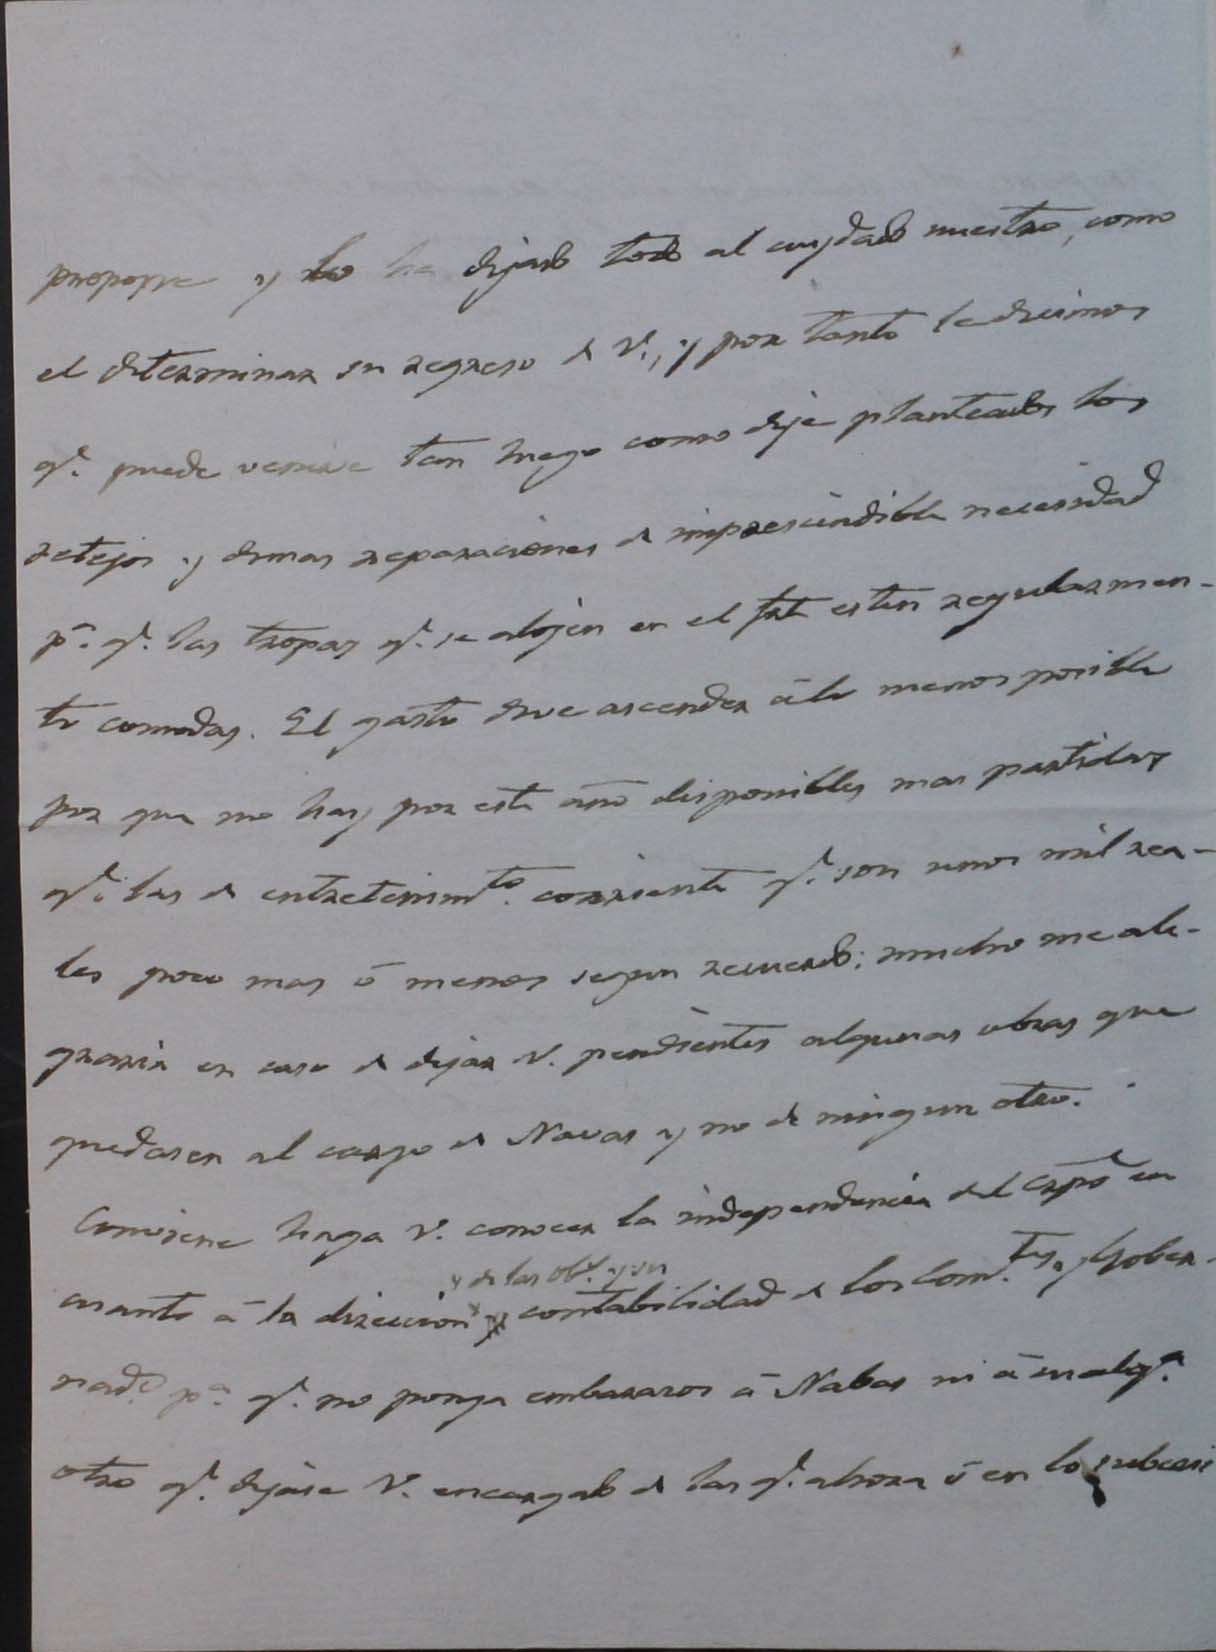 propone y lo ha dejado todo al cuydado nuestro, como
el determinar su regreso de V., y por tanto le decimos
q.e puede venirse tan luego como deje planteados los
retejos y demas reparaciones de imprescindible necesidad
p.a q.e las tropas q.e se alojen en el fte esten regularmen-
te comodas. El gasto deve ascender á lo menos posible
por que no hay por este año disponibles mas partidas
q.e las de entretenim.to corriente q.e son unos mil rea-
les poco mas ó menos segun recuerdo; mucho me ale-
graria en caso de dejar V. pendientes algunas obras que
quedasen al cargo de Navas y no de ningun otro.
Conviene haga V. conocer la independencia del Cuerpo en
y de las ob.s y su
cuanto á la direccion contabilidad de los Com.tes y Gober-
nad.s p.a q.e no ponga embarazos á Nabas ni á cualq.a
otro q.e dejase V. encargado de las q.e ahora ó en lo subcesi